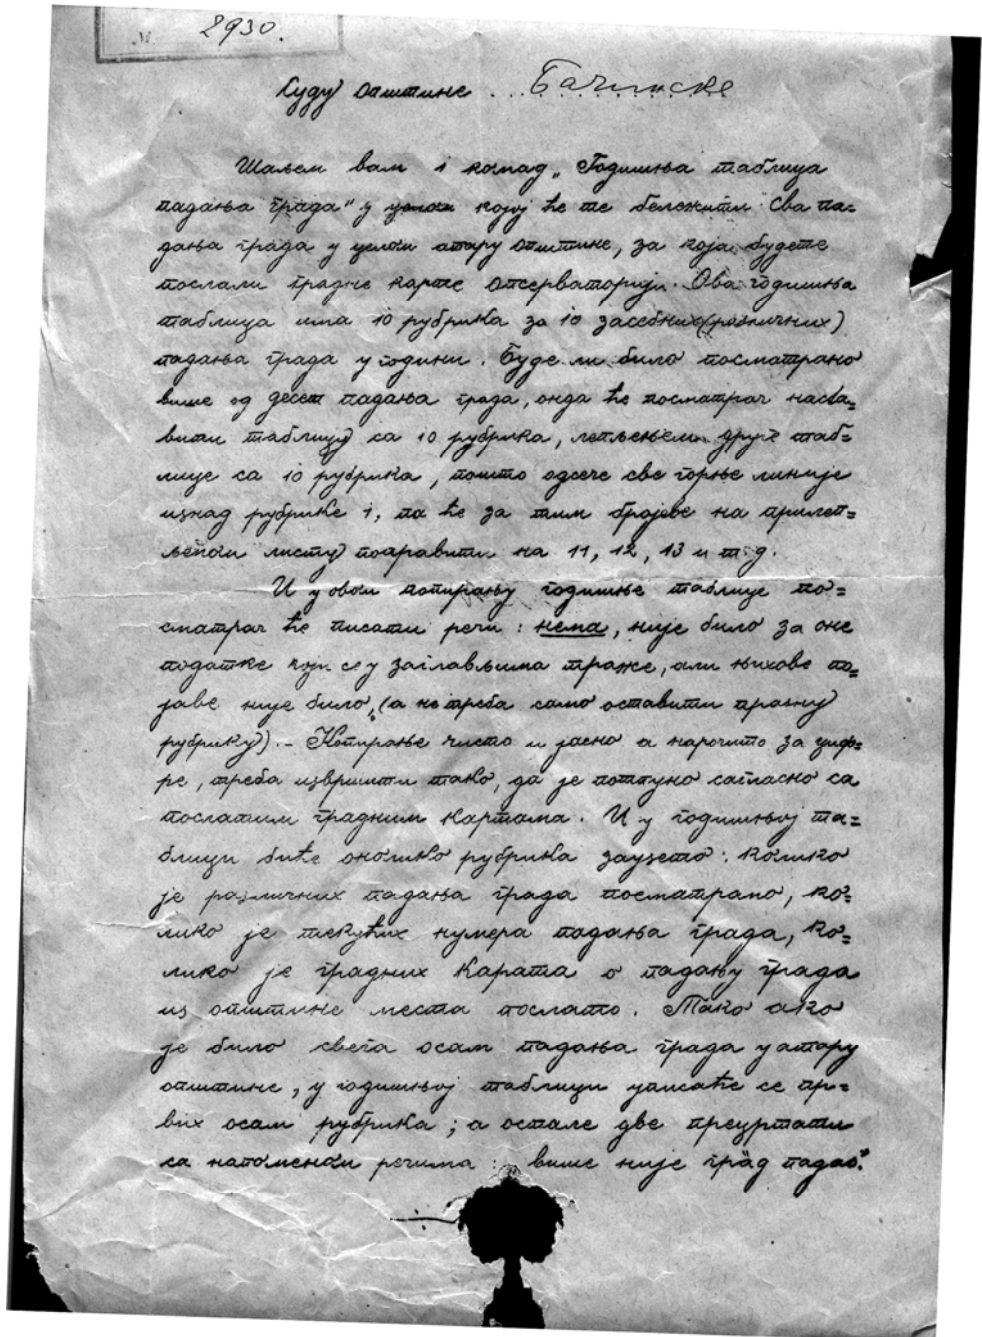 № 2930.
Суду општине ... Бачинске
Шаљем вам 1 комад „Годишња таблица
падања града" у целом којој ће те бележити сва па=
дања града у целом атару општине, за која будете
послали градне карте опсерваторији. Ова годишња
таблица има 10 рубрика за 10 засебних (различних)
падања града у години. Буде ли било посматрано
више од десет падања града, онда ће посматрач наста=
вити таблицу са 10 рубрика, лепљењем друге таб=
лице са 10 рубрика, пошто одсече све горње линије
изнад рубрике 1, па ће за тим бројеве на прилеп=
љеном листу поправити на 11, 12, 13 и т. д.
И у овом копирању годишње таблице по=
сматрач ће писати речи: нема, није било за оне
податке који се у заглављима траже, али њихове по=
јаве није било, (а не треба само оставити празну
рубрику). – Копирање чисто и јасно а нарочито за циф=
ре, треба извршити тако, да је потпуно сагласно са
послатим градним картама. И у годишњој та=
блици биће онолико рубрика заузето: колико
је различних падања града посматрано, ко=
лико је текућих нумера падања града, ко=
лико је градних карата о падању града
из општине места послато. Тако ако
је било свега осам падања града у атару
општине, у годишњој таблици уписаће се пр=
вих осам рубрика; а остале две прецртати
са напоменом речима: више није град падао."